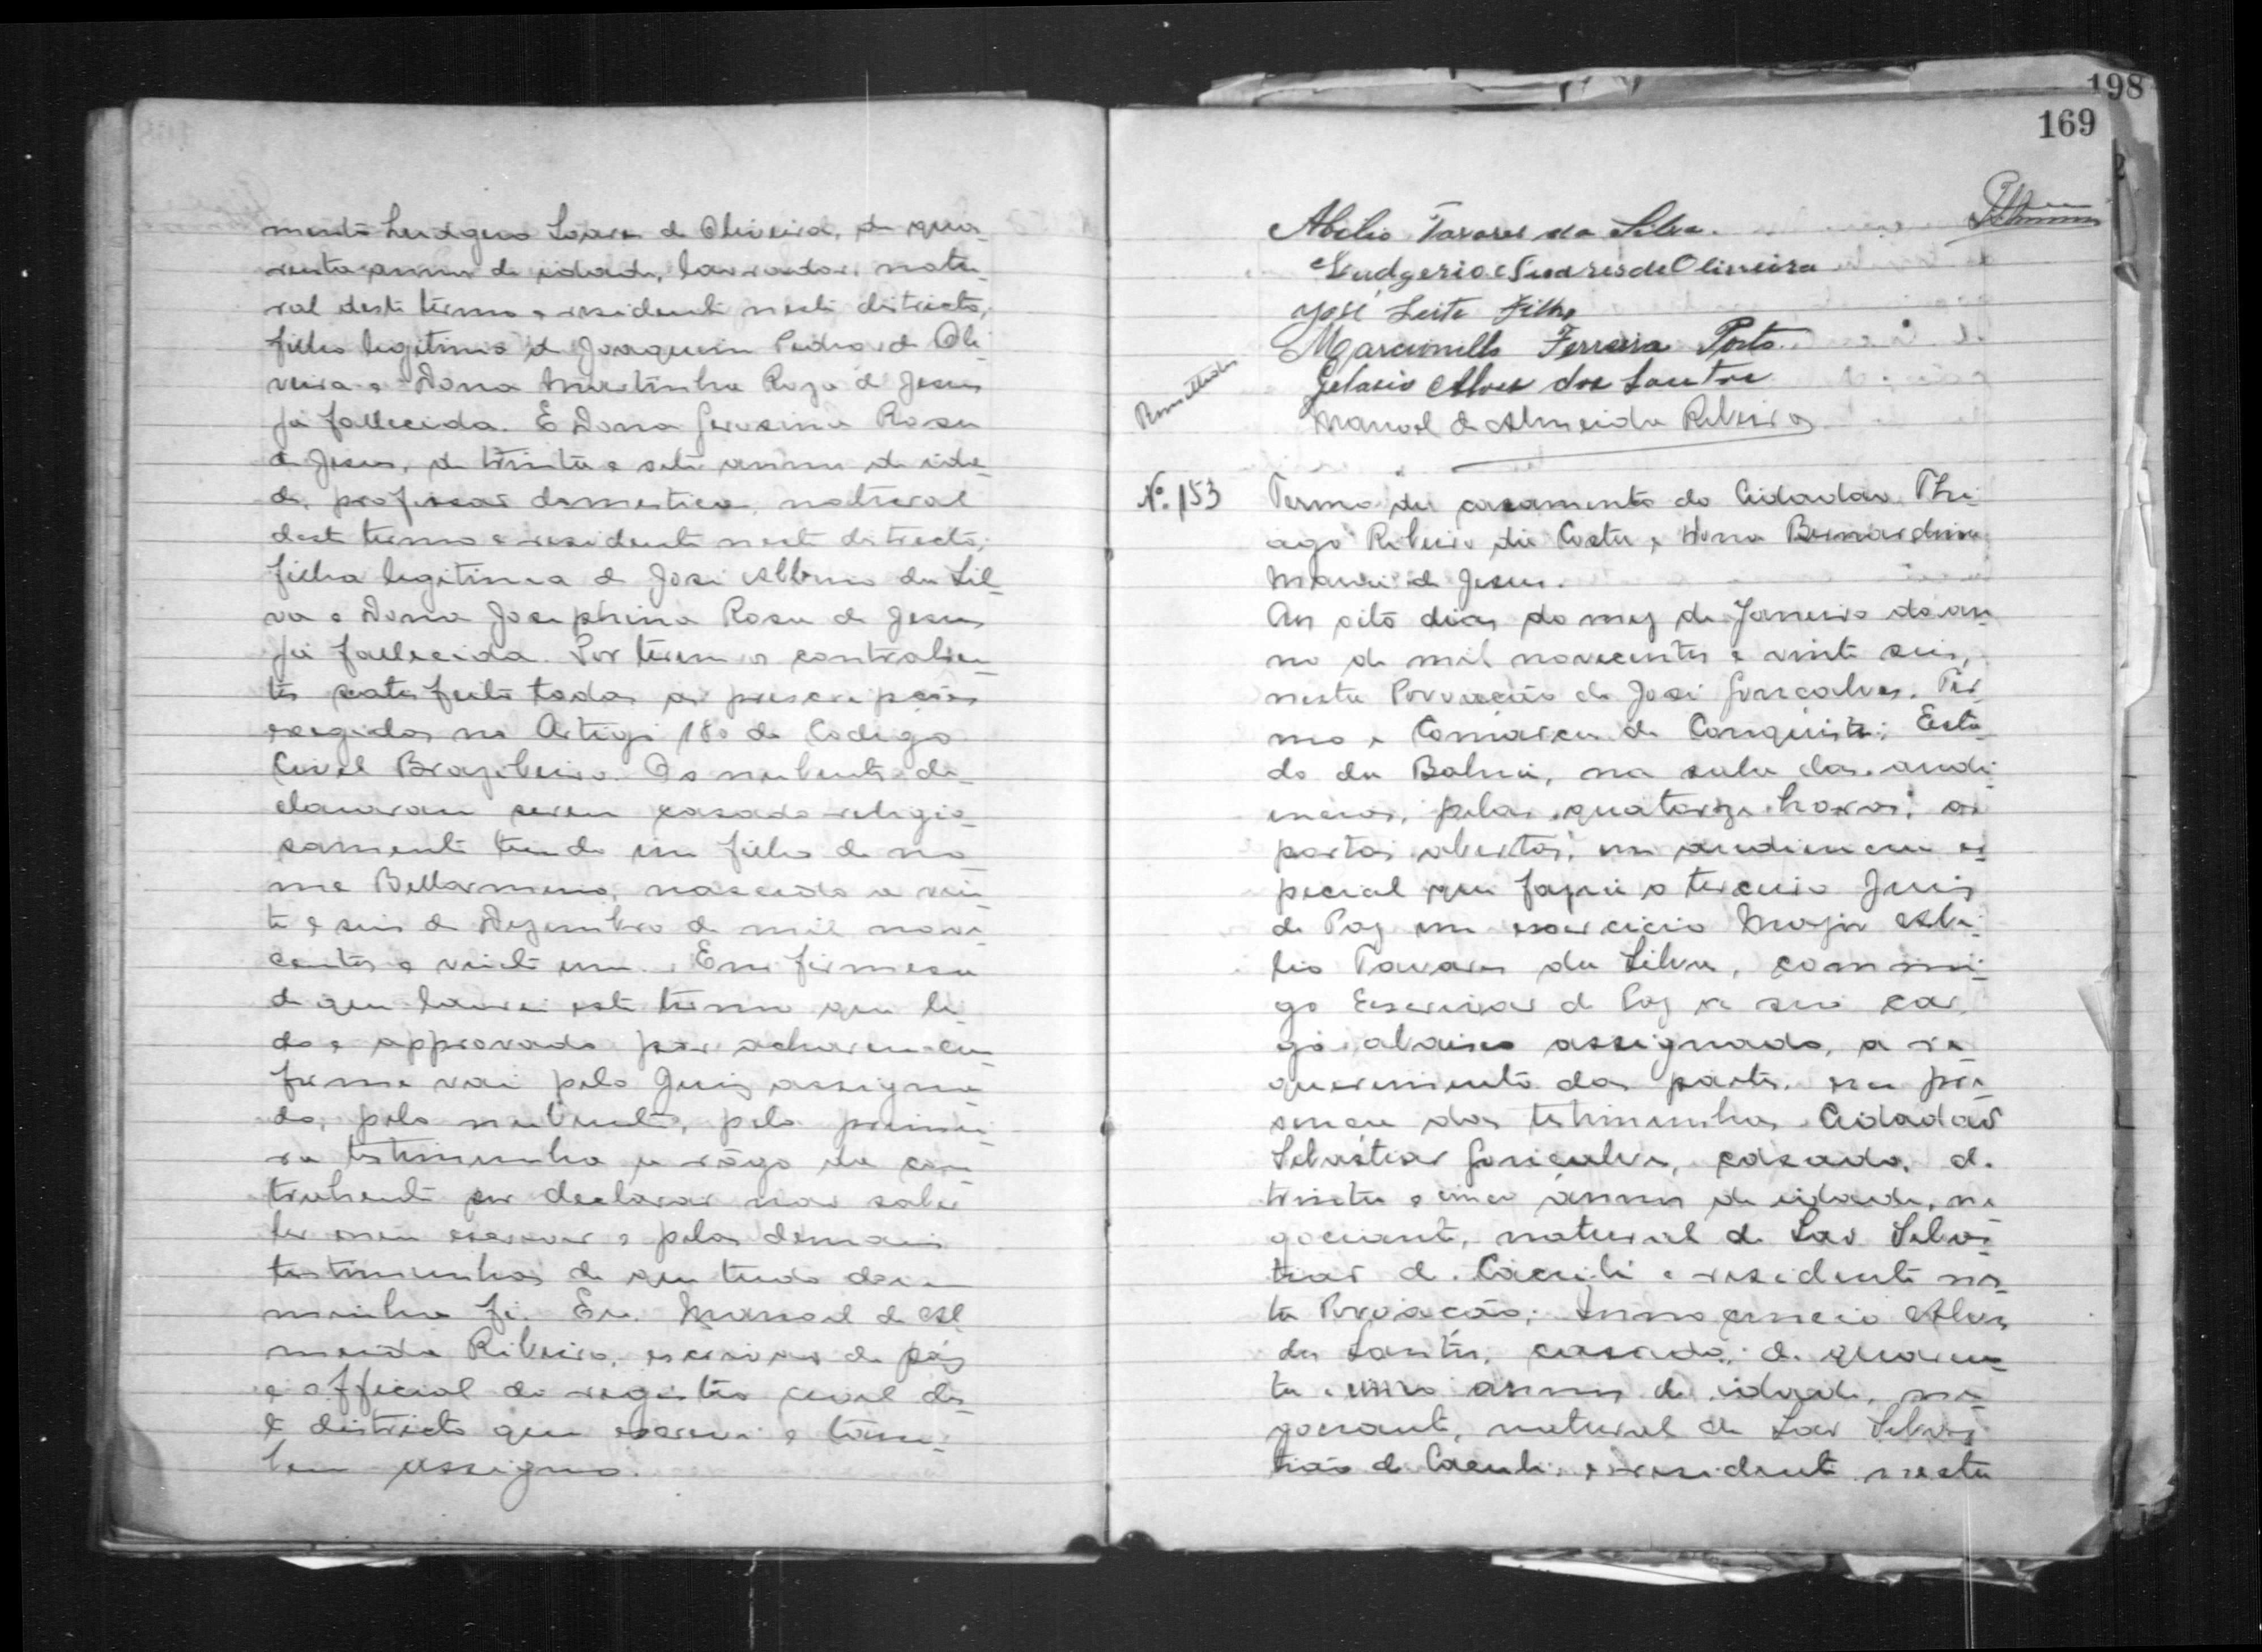 mento Ludgero Soares de Oliveira, de qua-
renta annos de idade, lavrador, natu-
ral deste termo e residente neste districto,
filho legitimo de Joaquim Pedro de Oli-
veira e Dona Martinha Roza de Jesus
já fallecida. E Dona Gerosina Rosa
de Jesus, de trinta e sete annos de ida-
de, profissão domestica, natural
deste termo e residente neste districto,
filha legitima de José Albino da Sil-
va e Dona Josephina Rosa de Jesus
já fallecida. Por terem os contrahen-
tes satisfeito todas as prescripções
exegidas no Artigo 180 do Codigo
Civel Brazileiro. Os nubentes de-
clararam serem casado religio-
samente tendo um filho de no-
me Bellarmino, nascido a vin-
te e seis de Dezembro de mil nove-
centos e vinte um. Em firmesa
do que lavrei este termo que li-
do e approvado por acharem con-
forme vai pelo Juiz assigna-
do, pelo nubente, pela primei-
ra testimunha a rôgo da con-
trahente por declarar não saber
ler nem escrever e pelas demais
testimunhas do que tudo dou
minha fé. Eu Manoel de Al-
meida Ribeiro, escrivão de páz
e official do registro civel des-
te districto que escrevi e tam-
bem assigno.
198
169
Abilio Tavares da Silva.
Ludgerio Suares de Oliveira
José Leite Filho
Marcionillo Ferreira Porto
Gelasio Alves dos Santos
Manoel de Almeida Ribeiro
Nº. 153
Termo de casamento do Cidadão Thi-
ago Ribeiro da Costa e Dona Bernardina
Maria de Jesus.
Aos oito dias do mez de Janeiro do an-
no de mil novecentos e vinte seis,
nesta Povoação de José Gonçalves, Ter-
mo e Comárca de Conquista; Esta-
do da Bahia, na sala das audi-
encias, pelas quatorze horas, as
portas abertas, em audiencia es-
pecial que fazia o terceiro Juiz
de Paz em exercicio Major Abi-
lio Tavares da Silva, commi-
go Escrivão de Paz de seu car-
go abaixo assignado, a re-
querimento das partes, na pre-
sença das testimunhas Cidadão
Sebastião Gonçalves, casado, de
trinta e cinco annos de idade, ne-
gociante, natural de São Sebas-
tião de Caculé e residente nes-
ta Povoação; Innocencio Alves
dos Santos, casado, de quaren-
ta e cinco annos de idade, ne-
gociante, natural de São Sebas-
tião de Caculé, e residente nesta